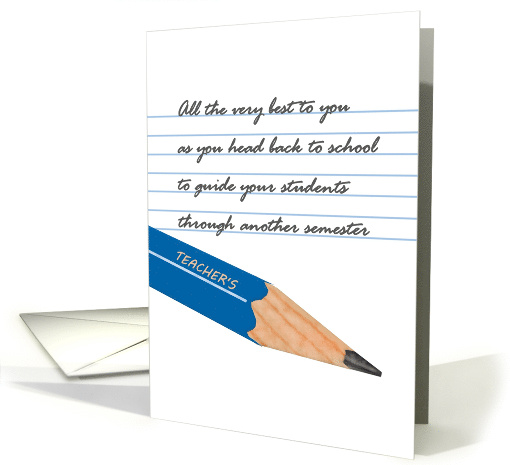 All the very best to you
as you head back to school
to guide your students
through another semester
TEACHER'S